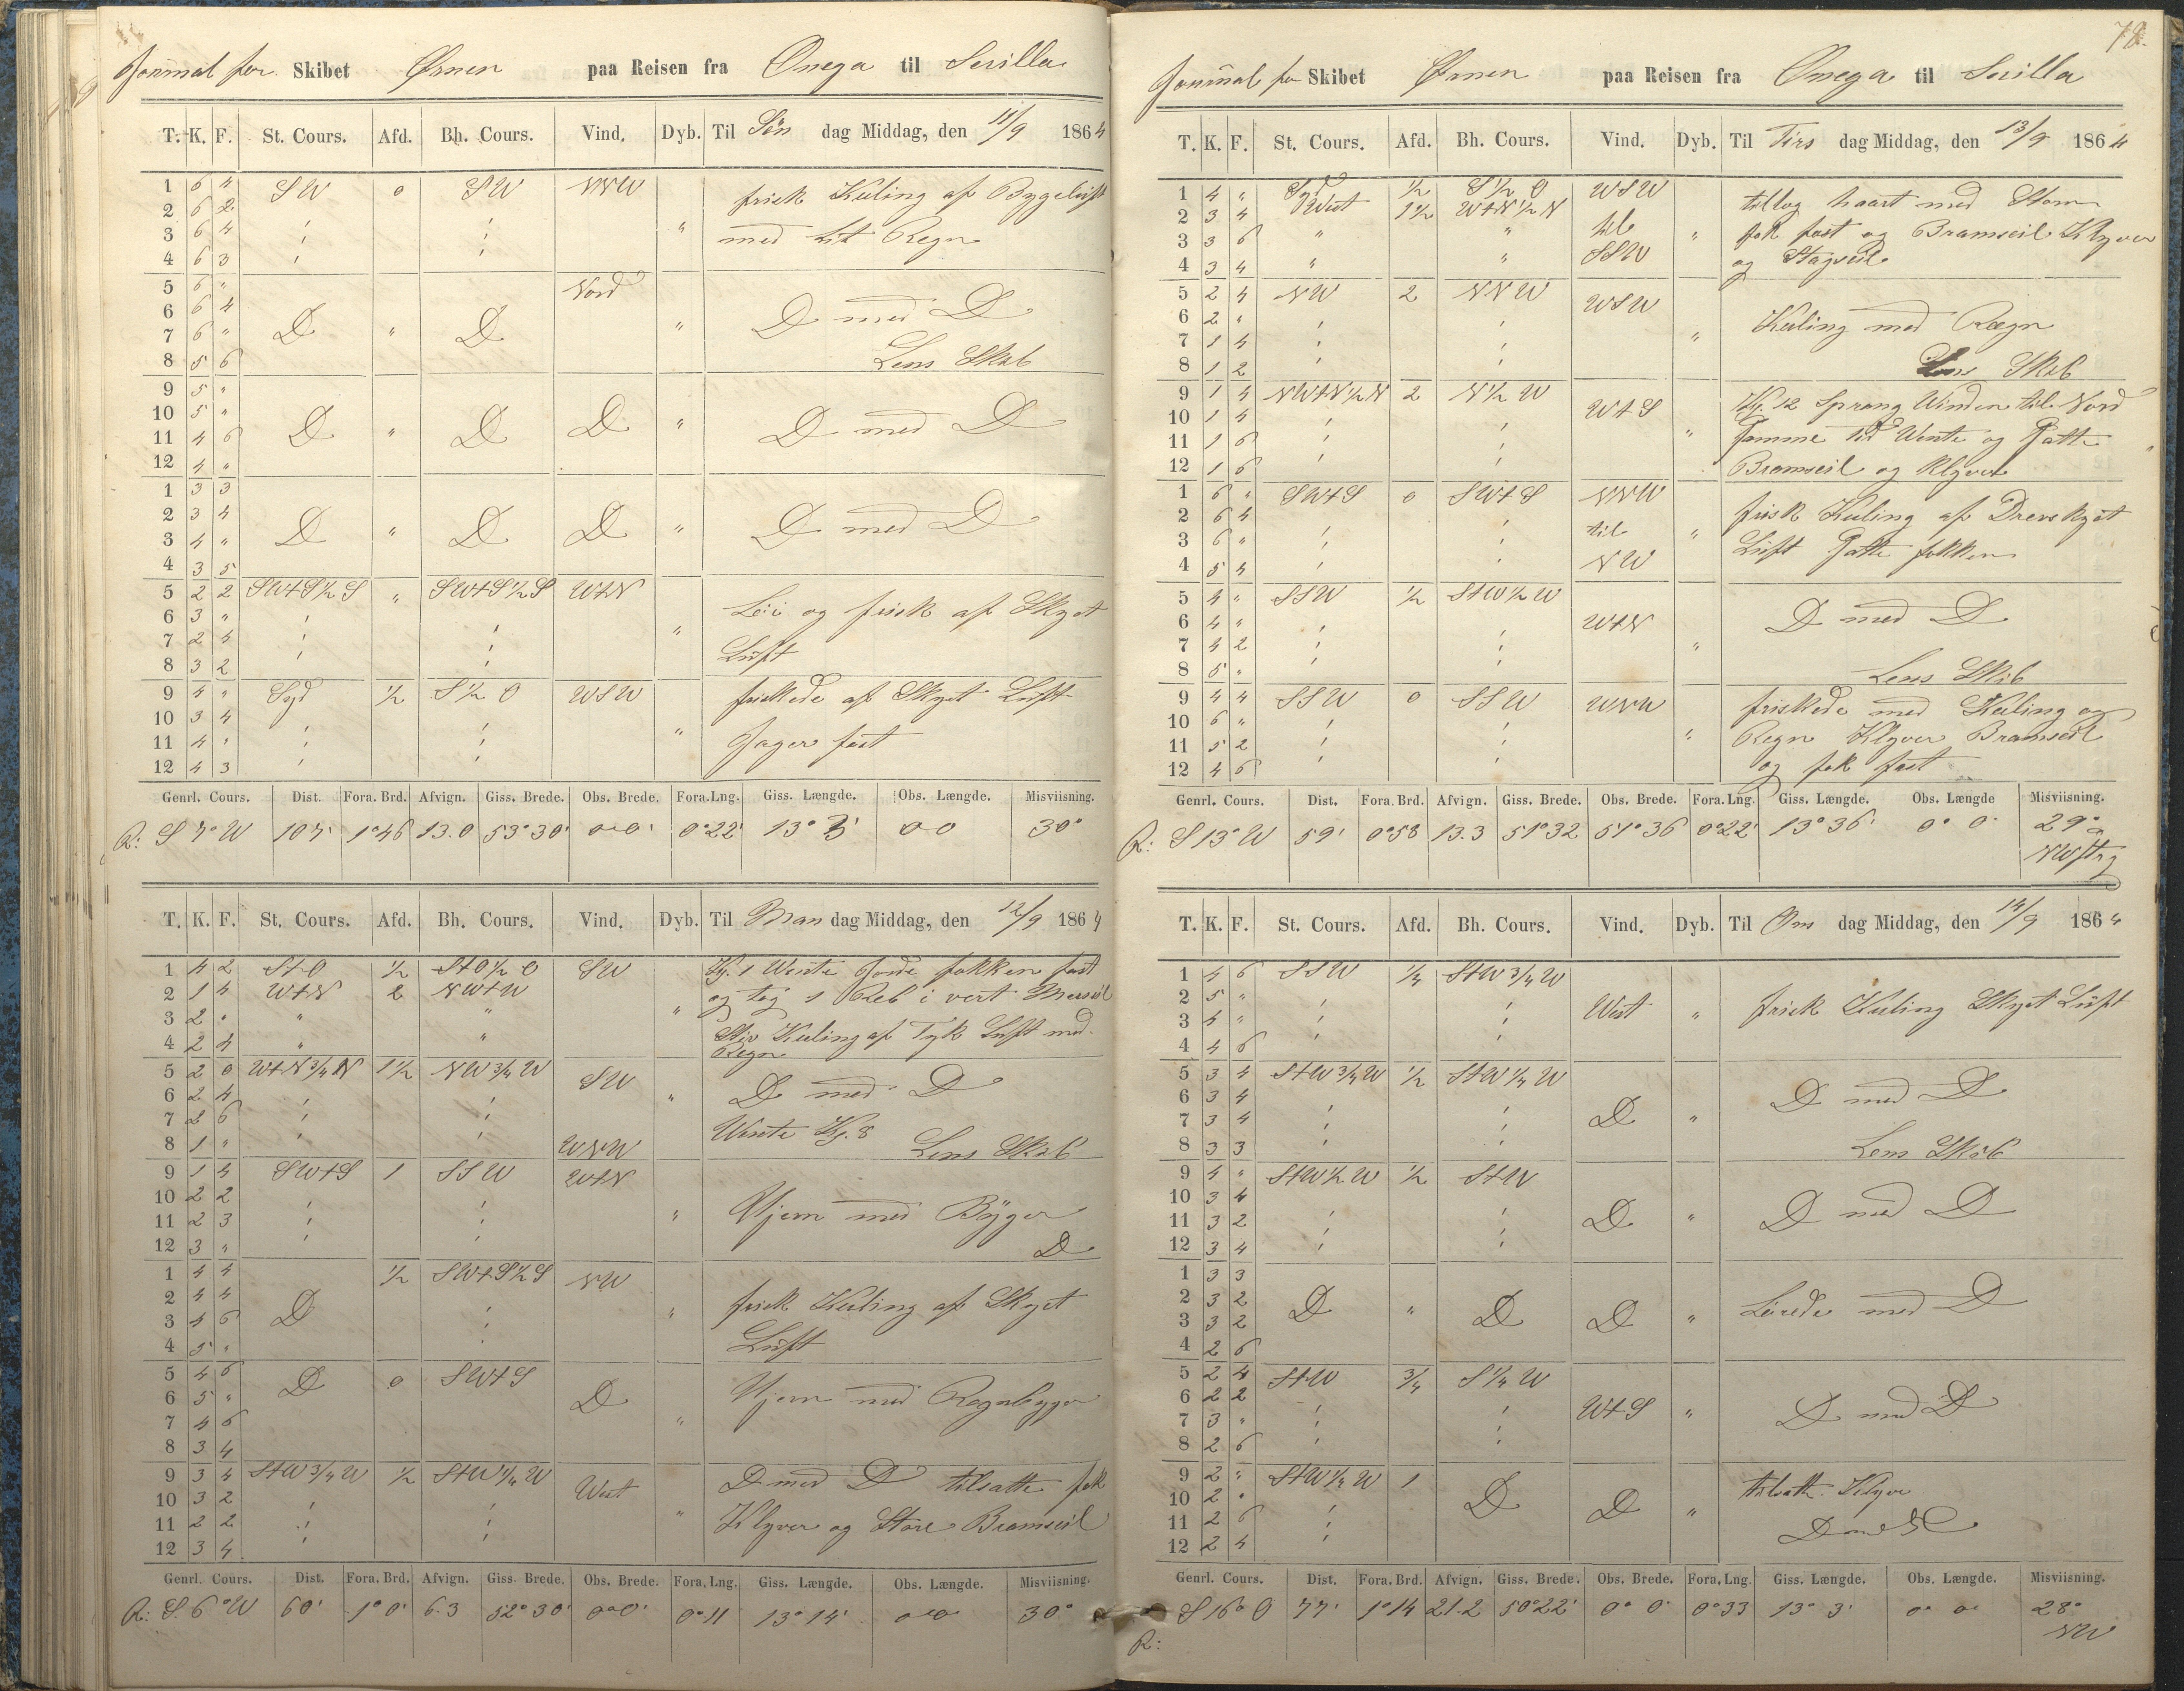 Journal for Skibet Ørnen paa Reisen fra Onega til Sevilla
T. K. F. St. Cours. Afd. Bh. Cours. Vind. Dyb. Til Søn dag Middag, den 11/9 1864
1 6 4 SW 0 SW NNW frisk Kuling af Bygeluft
2 6 2
3 6 4 " med lit Regn
4 6 3
5 6 " Nord
6 6 4 D " D " D med D
7 6 "
8 5 6 Lens Skib
9 5 "
10 5 " D " D D " D med D
11 4 6
12 4 "
1 3 3
2 3 4 D " D D " D med D
3 4 "
4 3 5
5 2 2 SWtS½S " SWtS½S WtN
6 3 " " Løi og frisk af Skyet
7 2 4
8 3 2 Luft
9 4 " Syd ½ S½O WSW friskede af Skyet Luft
10 3 4 "
11 4 " Jager fast
12 4 3
Genrl. Cours. Dist. Fora. Brd. Afvign. Giss. Brede. Obs. Brede. Fora. Lng. Giss. Længde. Obs. Længde. Misviisning.
R: S 7° W 107' 1°46 13.0 53°30' 0°0' 0°22' 13°3' 0 0 30°
T. K. F. St. Cours. Afd. Bh. Cours. Vind. Dyb. Til Man dag Middag, den 12/9 1864
1 4 2 StO ½ StO½O SW Kl. 1 Vente Gjorde fokken fast
2 1 4 WtN 2 NWtW " og tog 1 Reb i vert Mersseil
3 2 " " "
4 2 4 " " Stiv Kuling af Tyk Luft med Regn
5 2 0 WtN¾N 1½ NW¾W SW
6 2 4 " D med D
7 2 6 Vente Kl. 8
8 1 " WNW Lens Skib
9 1 4 SWtS 1 SSW WtN
10 2 2
11 2 3 " Ujevn med Byger
12 3 " D
1 4 4 ½ SWtS½S NW
2 4 4 frisk Kuling af Skyet
3 4 6 D "
4 5 " Luft
5 4 6 D 0 SWtS
6 5 " D Ujevn med Regnbyger
7 4 6 "
8 3 4
9 3 4 StW¾W ½ StW¼W D med D tilsatte fok
10 3 2 West
11 2 2 " Klyver og Store Bramseil
12 3 4
Genrl. Cours. Dist. Fora. Brd. Afvign. Giss. Brede. Obs. Brede. Fora. Lng. Giss. Længde. Obs. Længde. Misviisning.
R: S. 6° W 60' 1°0' 6.3 52°30' 0°0' 0°11 13°14' 0°0 30°
78.
Journal for Skibet Ørnen paa Reisen fra Onega til Sevilla
T. K. F. St. Cours. Afd. Bh. Cours. Vind. Dyb. Til Tirs dag Middag, den 13/9 1864
1 4 " Syd ½ S½O WSW tiltog haart med Storm
2 3 4 West 1½ WtN½N til
3 3 6 " " " fok fast og Bramseil Klyver
4 3 4 " " SSW og Stagseil
5 2 4 NW 2 NNW WSW
6 2 " Kuling med Rægn
7 1 4 "
8 1 2 Lens Skib
9 1 4 NWtN½N 2 N½W Kl. 12 Sprang Winden til Nord
10 1 4 WtS
11 1 6 " til Wente og Satte
12 1 6 Bramseil og Klyver
1 6 " SWtS 0 SWtS NNW
2 6 4 frisk Kuling af Drevskyet
3 6 " til "
4 5 4 NW Luft Satte fokken
5 4 " SSW ½ StW½W
6 4 " WtN D med D
7 4 2 "
8 5 " Lens Skib
9 4 4 SSW 0 SSW WNW friskede med Kuling og
10 6 "
11 5 2 " Regn Klyver Bramseil
12 4 6 og fok fast
Genrl. Cours. Dist. Fora. Brd. Afvign. Giss. Brede. Obs. Brede. Fora. Lng. Giss. Længde. Obs. Længde Misviisning.
R: S 13° W 59' 0°58 13.3 51°32 51°36 0°22' 13°36' 0° 0' 29°
T. K. F. St. Cours. Afd. Bh. Cours. Vind. Dyb. Til Ons dag Middag, den 14/9 1864
1 4 6 SSW ¼ StW¾W
2 5 " West " frisk Kuling Skyet Luft
3 4 "
4 4 6
5 3 4 StW¾W ½ StW¼W
6 3 4 D med D
7 3 4 D "
8 3 3 Lens Skib
9 4 " StW½W ½ StW
10 3 4
11 3 2 D " D med D
12 3 4
1 3 3
2 3 2 D " D D " Løiede med D
3 3 2
4 2 6
5 2 4 StW ¾ S¼W
6 2 2
7 3 " WtS " D med D
8 2 6
9 2 " StW¼W 1 tilsatte Klyver
10 2 " D D "
11 2 6 D med D
12 2 4
Genrl. Cours. Dist. Fora. Brd. Afvign. Giss. Brede. Obs. Brede. Fora. Lng. Giss. Længde. Obs. Længde. Misviisning.
R: S 16° O 77' 1°14 21.2 50°22' 0° 0' 0°33 13° 3' 0° 0' 28°
NW